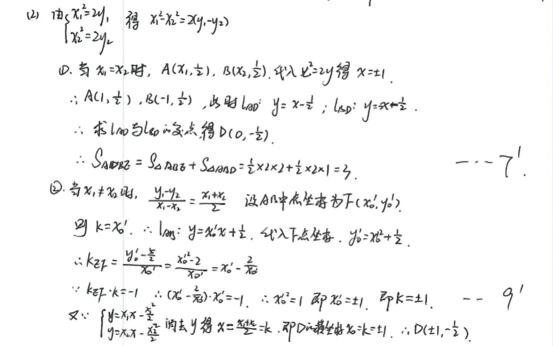 (2) 由 { x₁²=2y₁ 得 x₁²-x₂²=2(y₁-y₂)
x₂²=2y₂
①. 当 x₁=x₂时, A(x₁,½), B(x₂,½). 代入 x²=2y 得 x=±1.
∴ A(1,½), B(-1,½), 此时 l_AD: y=x-½; l_BD: y=-x-½.
∴ 求 l_AD 与 l_BD 的交点得 D(0,-½).
∴ S_ADBE = S_△ABE + S_△ABD = ½×2×2+½×2×1=3. ---- 7'
②. 当 x₁≠x₂时, (y₁-y₂)/(x₁-x₂) = (x₁+x₂)/2 设AB中点坐标为F(x₀',y₀').
则 k=x₀'. ∴ l_AB: y=x₀'x+½. 代入F点坐标. y₀'=x₀'²+½.
∴ k_EF = (y₀'-5/2)/x₀' = (x₀'²-2)/x₀' = x₀'-2/x₀'
∵ k_EF·k=-1 ∴ (x₀'-2/x₀')·x₀'=-1. ∴ x₀'²=1 即 x₀'=±1. 即 k=±1. -- 9'
又∵ { y=x₁x-x₁²/2
y=x₂x-x₂²/2 消去 y 得 x=(x₁+x₂)/2=k. 即D的横坐标x₀=k=±1. ∴ D(±1,-½).